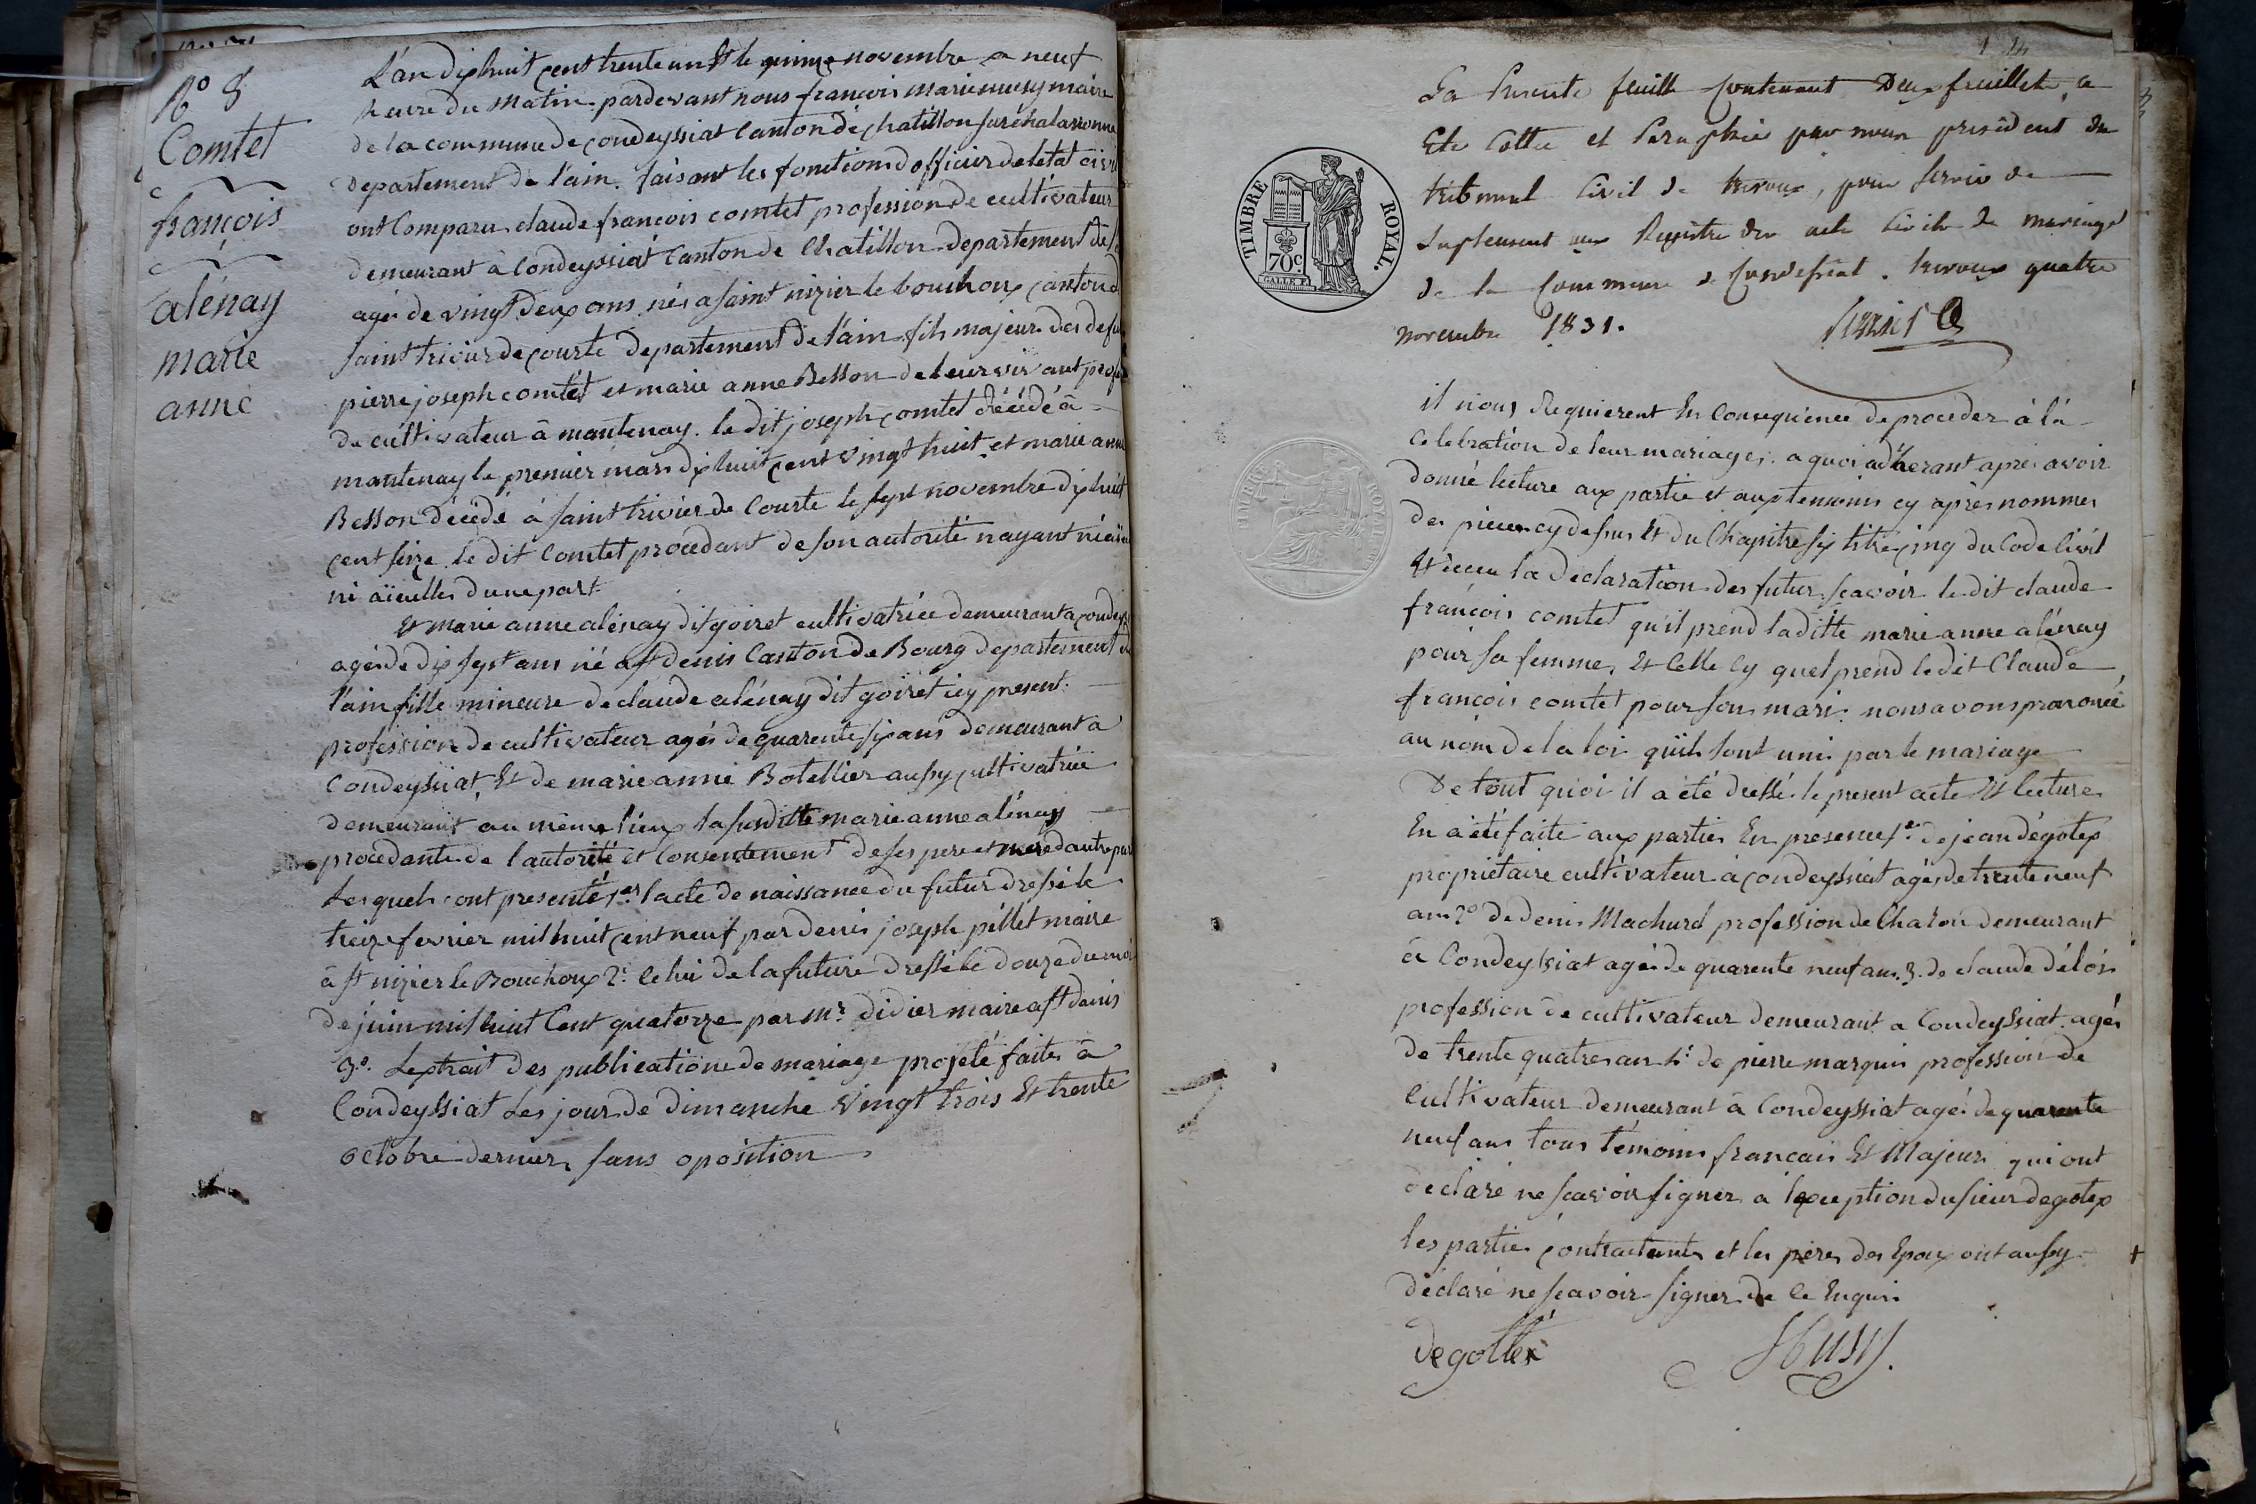 N° 8
Comtet
françois
alénay
marie
anne
L'an dixhuit cent trente un Et le quinze novembre a neuf
heure du matin pardevant nous francois marie musy maire
de la commune de condeyssiat Canton de chatillon sur chalaronne
departement de l'ain. faisant les fonctions dofficier deletat civil
ont Comparu claude francois comtet profession de cultivateur
demeurant à Condeyssiat Canton de Chatillon departement de
agé de vingt deux ans nés a saint nizier le bouchoux canton d
saint trivier de courte departement de l'ain fils majeur des defu
pierre joseph comtet et marie anne Besson de leur vivant prof
de cultivateur à mantenay. le dit joseph comtet décédé à
mantenay le premier mars dixhuit cent vingt huit et marie anne
Besson décédé à saint trivier de Courte le sept novembre dixhuit
cent seize le dit Comtet procedant de son autorité nayant ni aïeux
ni aïeulles d'une part
Et marie anne alénay dit goiret cultivatrice demeurant a condeys
agée de dix sept ans né a st denis Canton de Bourg departement de
l'ain fille mineure de claude alénay dit goiret icy present
profession de cultivateur agés de quarente six ans demeurant à
Condeyssiat, Et de marie anne Botellier aussy cultivatrice
demeurant au même lieux la susditte marie anne alénay
procedante de l'autorité et Consentement de ses pere et mere dautre part
Lesquels ont presenté 1er l'acte de naissance du futur dressé le
treize fevrier mil huit cent neuf par denis joseph pillet maire
à st nizier le Bouchoux 2°. Celui de la future dressé le douze du mois
de juin mil huit Cent quatorze par mr didier maire a st denis
3°. Lextrait des publications de mariage projeté faites à
Condeyssiat Les jour de dimanche vingt trois Et trente
octobre dernier, sans oposition
La Presente feuille Contenant Deux feuillets, a
Ete Cottée et Paraphée par nous president du
tribunal Civil de trevoux, pour servir de
Suplement aux Registre des acte Civils de mariage
de la Commune de Condessiat. trevoux quatre
novembre 1831.
TIMBRE ROYAL.
70c.
il nous Requierent En Consequence de proceder à la
Celebration de leur mariage, a quoi adherant apres avoir
donné lecture aux partie et aux temoins cy après nommes
des pieces cy dessus Et du Chapitre six titre cinq du Code Civil
Et recu la declaration des futur scavoir le dit claude
francois comtet qu'il prend laditte marie anne alénay
pour sa femme, Et Celle Cy quel prend le dit Claude
françois comtet pour son mari, nous avons prononcé
au nom de la loi quils sont unis par le mariage
De tout quoi il a été dressé le present acte Et lecture
En a été faite aux parties En presence 1er de jean dégotex
propriétaire cultivateur à Condeyssiat agés de trente neuf
ans 2° de denis Machurd profession de Charon demeurant
à Condeyssiat agé de quarente neuf ans. 3. de claude délors
profession de cultivateur demeurant a Condeyssiat agés
de trente quatre ans 4°. de pierre marquis profession de
Cultivateur demeurant à Condeyssiat agé de quarente
neuf ans tous témoins francais Et Majeurs qui ont
declaré ne scavoir signer a lexception du sieur degotex
les parties contractants et les peres des Epoux ont aussy
declaré ne scavoir signer de ce Enquis
degottex
Musy